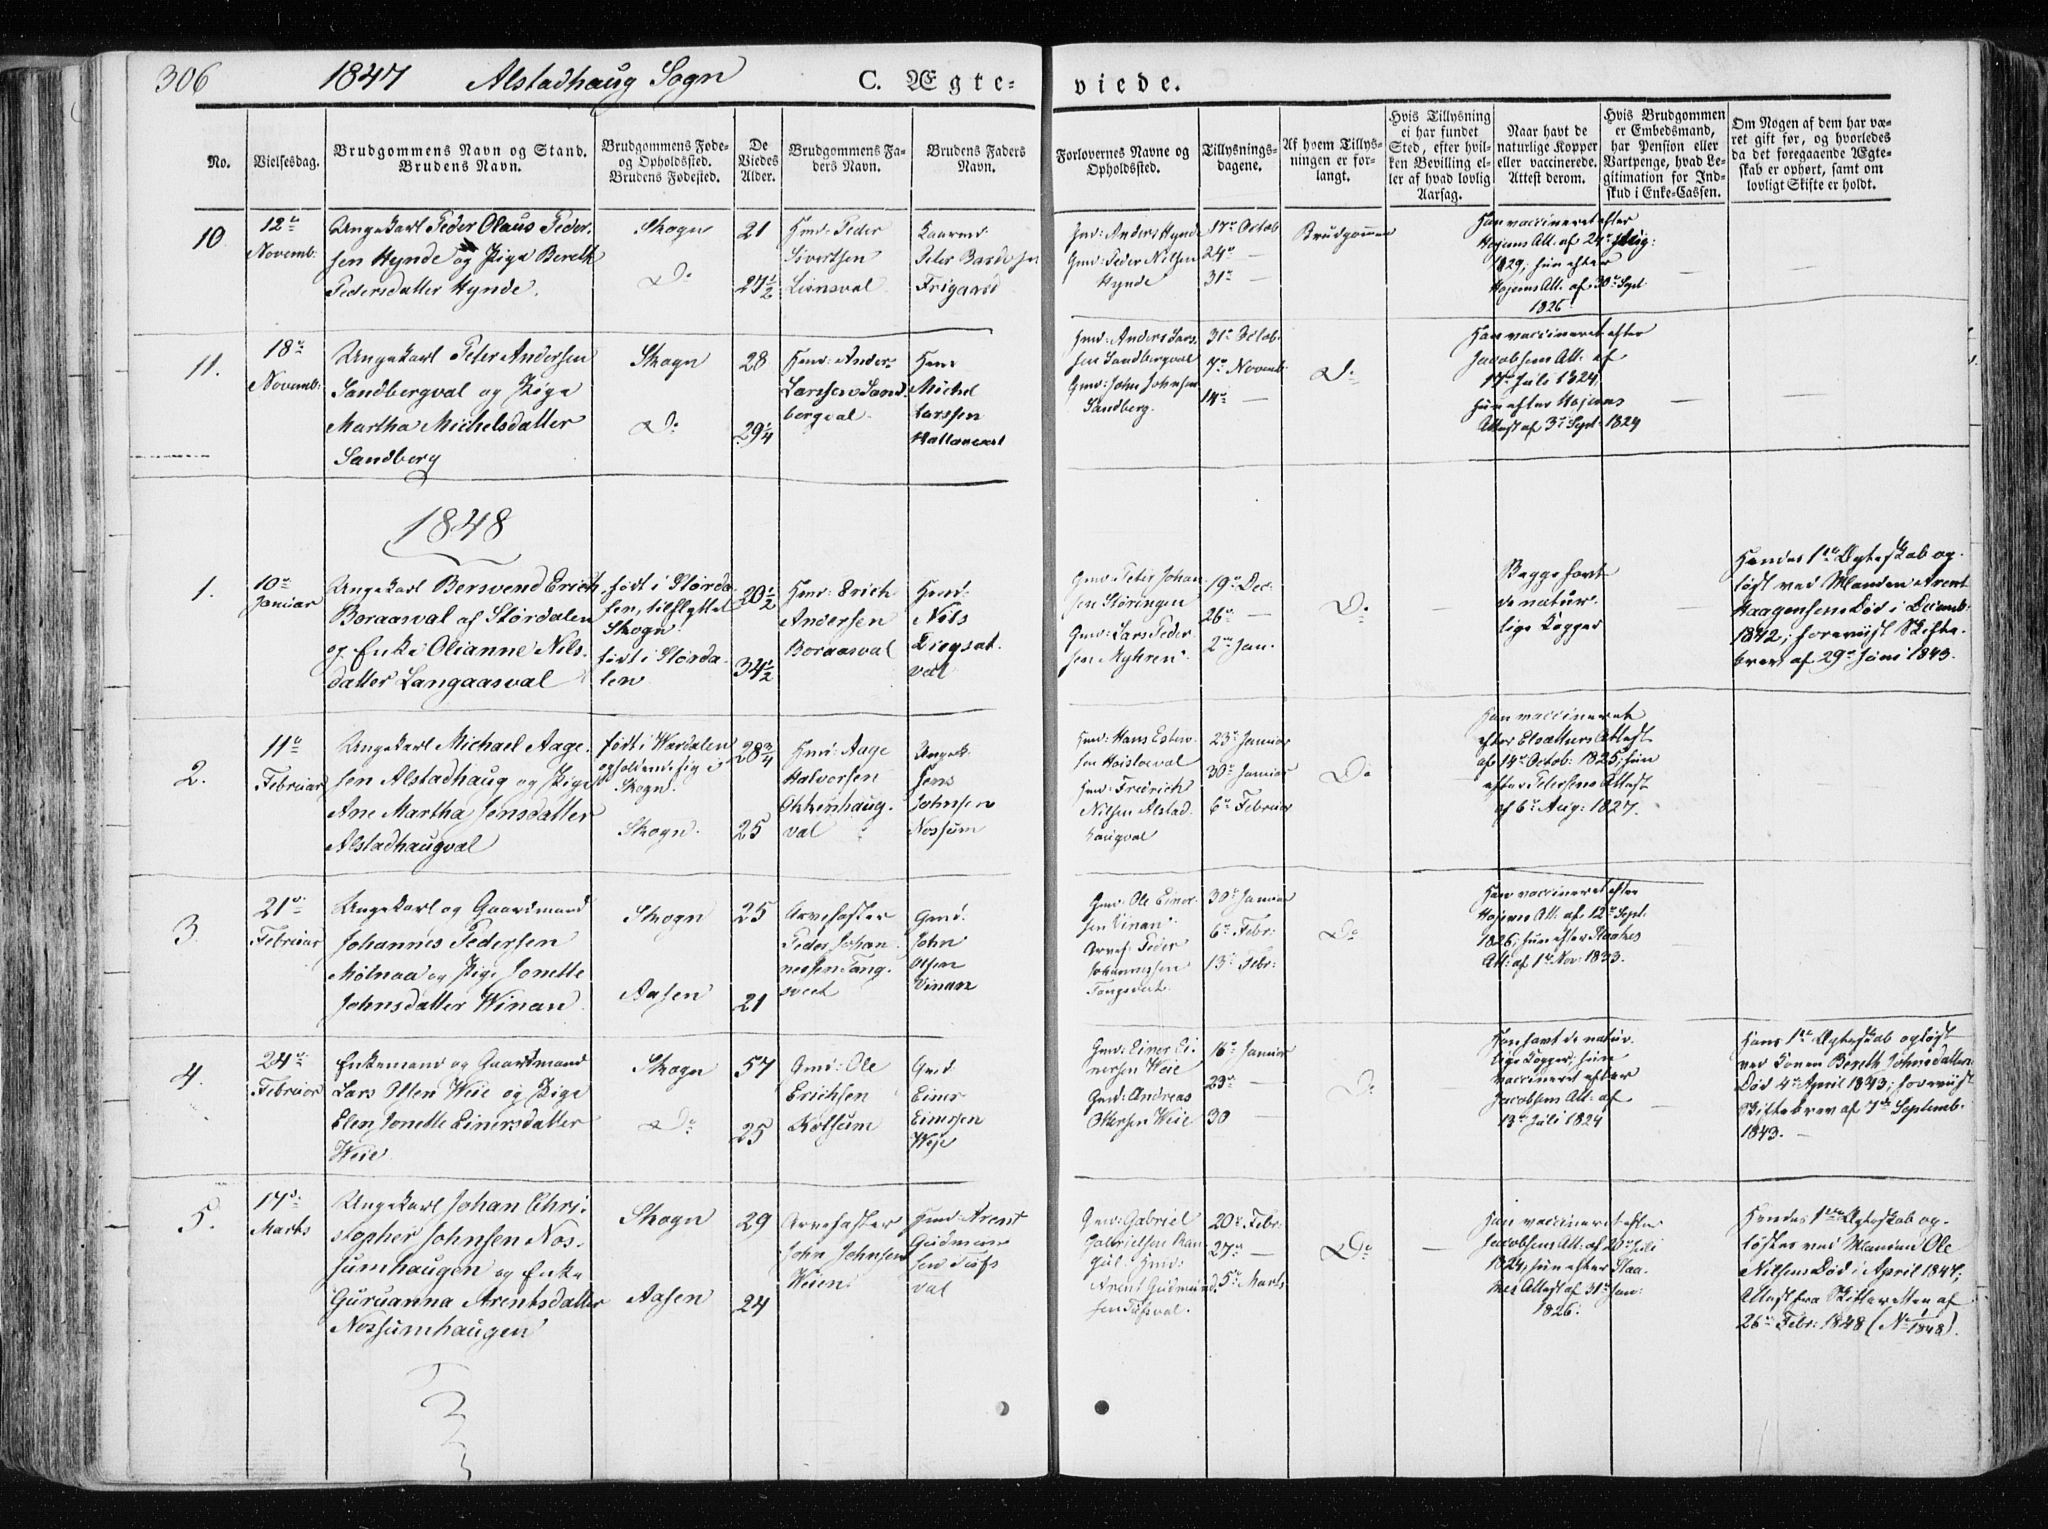 306 1847 Alstadhaug Sogn C. Ægteviede.
No.
Vielsesdag.
Brudgommens Navn og Stand.
Brudens Navn.
Brudgommens Føde-
og Opholdssted.
Brudens Fødested.
De
Viedes
Alder.
Brudgommens Fa-
ders Navn.
Brudens Faders
Navn.
Forlovernes Navne og
Opholdssted.
Tillysnings-
dagene.
Af hvem Tillys-
ningen er for-
langt.
Hvis Tillysning
ei har fundet
Sted, efter hvil-
ken Bevilling el-
ler af hvad lovlig
Aarsag.
Naar havt de
naturlige Kopper
eller vaccinerede.
Attest derom.
Hvis Brudgommen
er Embedsmand,
har Pension eller
Vartpenge, hvad Le-
gitimation for Ind-
skud i Enke-Cassen.
Om Nogen af dem har væ-
ret gift før, og hvorledes
da det foregaaende Ægte-
skab er ophørt, samt om
lovligt Skifte er holdt.
10
12te
Novemb:
Ungekarl Peder Olaus Peder-
sen Hynde og Pige Bereth
Pedersdatter Hynde.
Skogn
Do
21
27½
Hmd: Peder
Sivertsen
Liensval
Kaarmd:
Peter Bardosen
Frigaard
Gmd: Anders Hynde
Gmd: Peder Nilsen
Hynde
17de Octob
24de —
31te —
Brudgommen
Han vaccineret efter
Hojems Att: af 24de Aug:
1829; hun efter
Hojems Att: af 30te Sept
1826.
—
—
11.
18de
Novemb:
Ungekarl Peter Andersen
Sandbergval og Pige
Martha Michelsdatter
Sandberg
Skogn
Do
28
29¼
Hmd: Anders
Larssen Sand-
bergval
Hmd
Michel
Larssen
Gmd: Anders Lars-
sen Sandbergval
Gmd: John Johnsen
Sandberg.
31te Octob.
7de Novemb
14de —
Do
Han vaccineret efter
Jacobsens Att: af
17de Juli 1824,
hun efter Hojems
Attest af 3de Sept: 1824
—
—
1848
1.
10de
Januar
Ungekarl Bersvend Erich
Boraasval af Størdalen
og Enke Olianne Nils-
datter Langaasval
født i Størda-
len, tilflyttet
Skogn.
født i Størda-
len
20½
34½
Hmd: Erich
Andersen
Boraasval
Hmd:
Nils
val
Gmd: Peter Johan-
sen Støringen
Gmd: Lars Peder-
sen Myhren.
19de Dec:
26de —
2den Jan.
Do
—
Begge havt
de natur-
lige Kopper
—
Hendes 1ste Ægteskab op-
løst ved Manden Arent
Haagensens Død i Decemb:
1842; foreviist Skifte-
brev af 29de Juni 1843.
2.
11te
Februar
Ungekarl Michael Aage-
sen Alstadhaug og Pige
Ane Martha Jensdatter
Alstadhaugval
født i Værdalen
opholdende sig i
Skogn.
Skogn.
28¾
25
Hmd: Aage
Halvorsen
Okkenhaug-
val
Ungek:
Jens
Johnsen
Nossum
Hmd: Hans Esten-
sen
Hmd: Fredrich
Nilsen Alstad-
haugval
23de Januar
30te Januar
6te Februar
Do
—
Han vaccineret
efter Attest
af 14de Octob: 1825; hun
efter Petersens Attest
af 6te Aug: 1827.
—
3.
21de
Februar
Ungekarl og Gaardmand
Johannes Pedersen
Molnaa og Pige Jonette
Johnsdatter Winan
Skogn
Aasen
25
21
Arvefæster
Peder Johan-
nessen Tang-
sveet
Gmd.
John
Olsen
Vinan
Gmd: Ole Einer-
sen Vinan.
Arvef: Peder
Johannessen
Tangsveet
30te Januar
6te Febr:
13de Febr:
Do
Han vaccineret efter
Hojems Att: af 12te Sept.
1826; hun efter
Att: af 1ste Nov: 1833.
4.
24de
Februar
Enkemand og Gaardmand
Lars Olsen Weie og Pige
Elen Jonette Einersdatter
Weie
Skogn
Do
57
25
Gmd: Ole
Erichsen
Rossum
Gmd
Einer
Einersen
Weje
Gmd: Einer Ei-
nersen Weie
Gmd: Andreas
Ottersen Weie
16de Januar
23de —
30 —
Do
Han havt de natur-
lige Kopper; hun
vaccineret efter
Jacobsens Att: af
13de Juli 1824
—
Hans 1ste Ægteskab opløst
ved Konen Bereth Johnsdatters
Død 4de April 1843; foreviist
Skiftebrev af 7de Septemb:
1843. —
5.
17de
Marts
Ungekarl Johan Chri-
stopher Johnsen Nos-
sumhaugen og Enke
Guruanna Arentsdatter
Nossumhaugen
Skogn
Aasen
29
24
Arvefæster
John Johnsen
Weien
Hmd: Arent
Gudmun-
sen Tufs-
val
Gmd: Gabriel
Gabrielsen Ran-
gul. Hmd:
Arent Gudmund-
sen Tufsval.
20de Febr:
27de —
5te Marts
Do
—
Han vaccineret efter
Jacobsens Att: af 20de Juli
1824; hun efter
Attest af 31te Jan:
1826.
Hendes 1ste Ægteskab op-
løstes ved Manden Ole
Nilsens Død i April 1847;
Attest fra Skifteretten af
26de Febr: 1848 (No 1/1848).